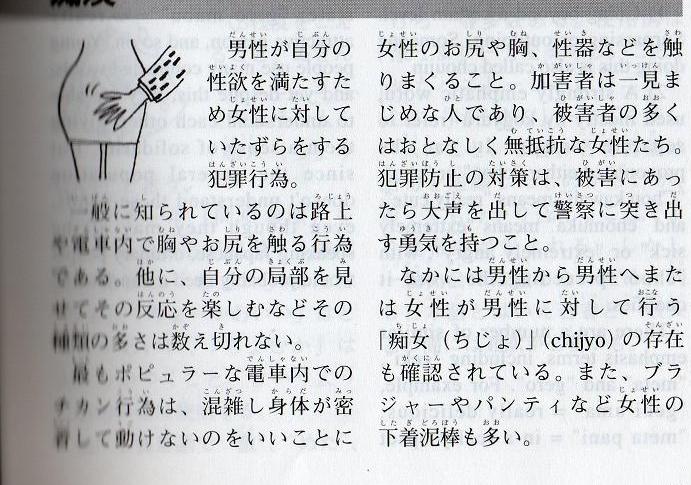 男性が自分の
性欲を満たすた
め女性に対して
いたずらをする
犯罪行為。
一般に知られているのは路上
や電車内で胸やお尻を触る行為
である。他に、自分の局部を見
せてその反応を楽しむなどその
種類の多さは数え切れない。
最もポピュラーな電車内での
チカン行為は、混雑し身体が密
着して動けないのをいいことに
女性のお尻や胸、性器などを触
りまくること。加害者は一見ま
じめな人であり、被害者の多く
はおとなしく無抵抗な女性たち。
犯罪防止の対策は、被害にあっ
たら大声を出して警察に突き出
す勇気を持つこと。
なかには男性から男性へまた
は女性が男性に対して行う
「痴女（ちじょ）」(chijyo) の存在
も確認されている。また、ブラ
ジャーやパンティなど女性の
下着泥棒も多い。